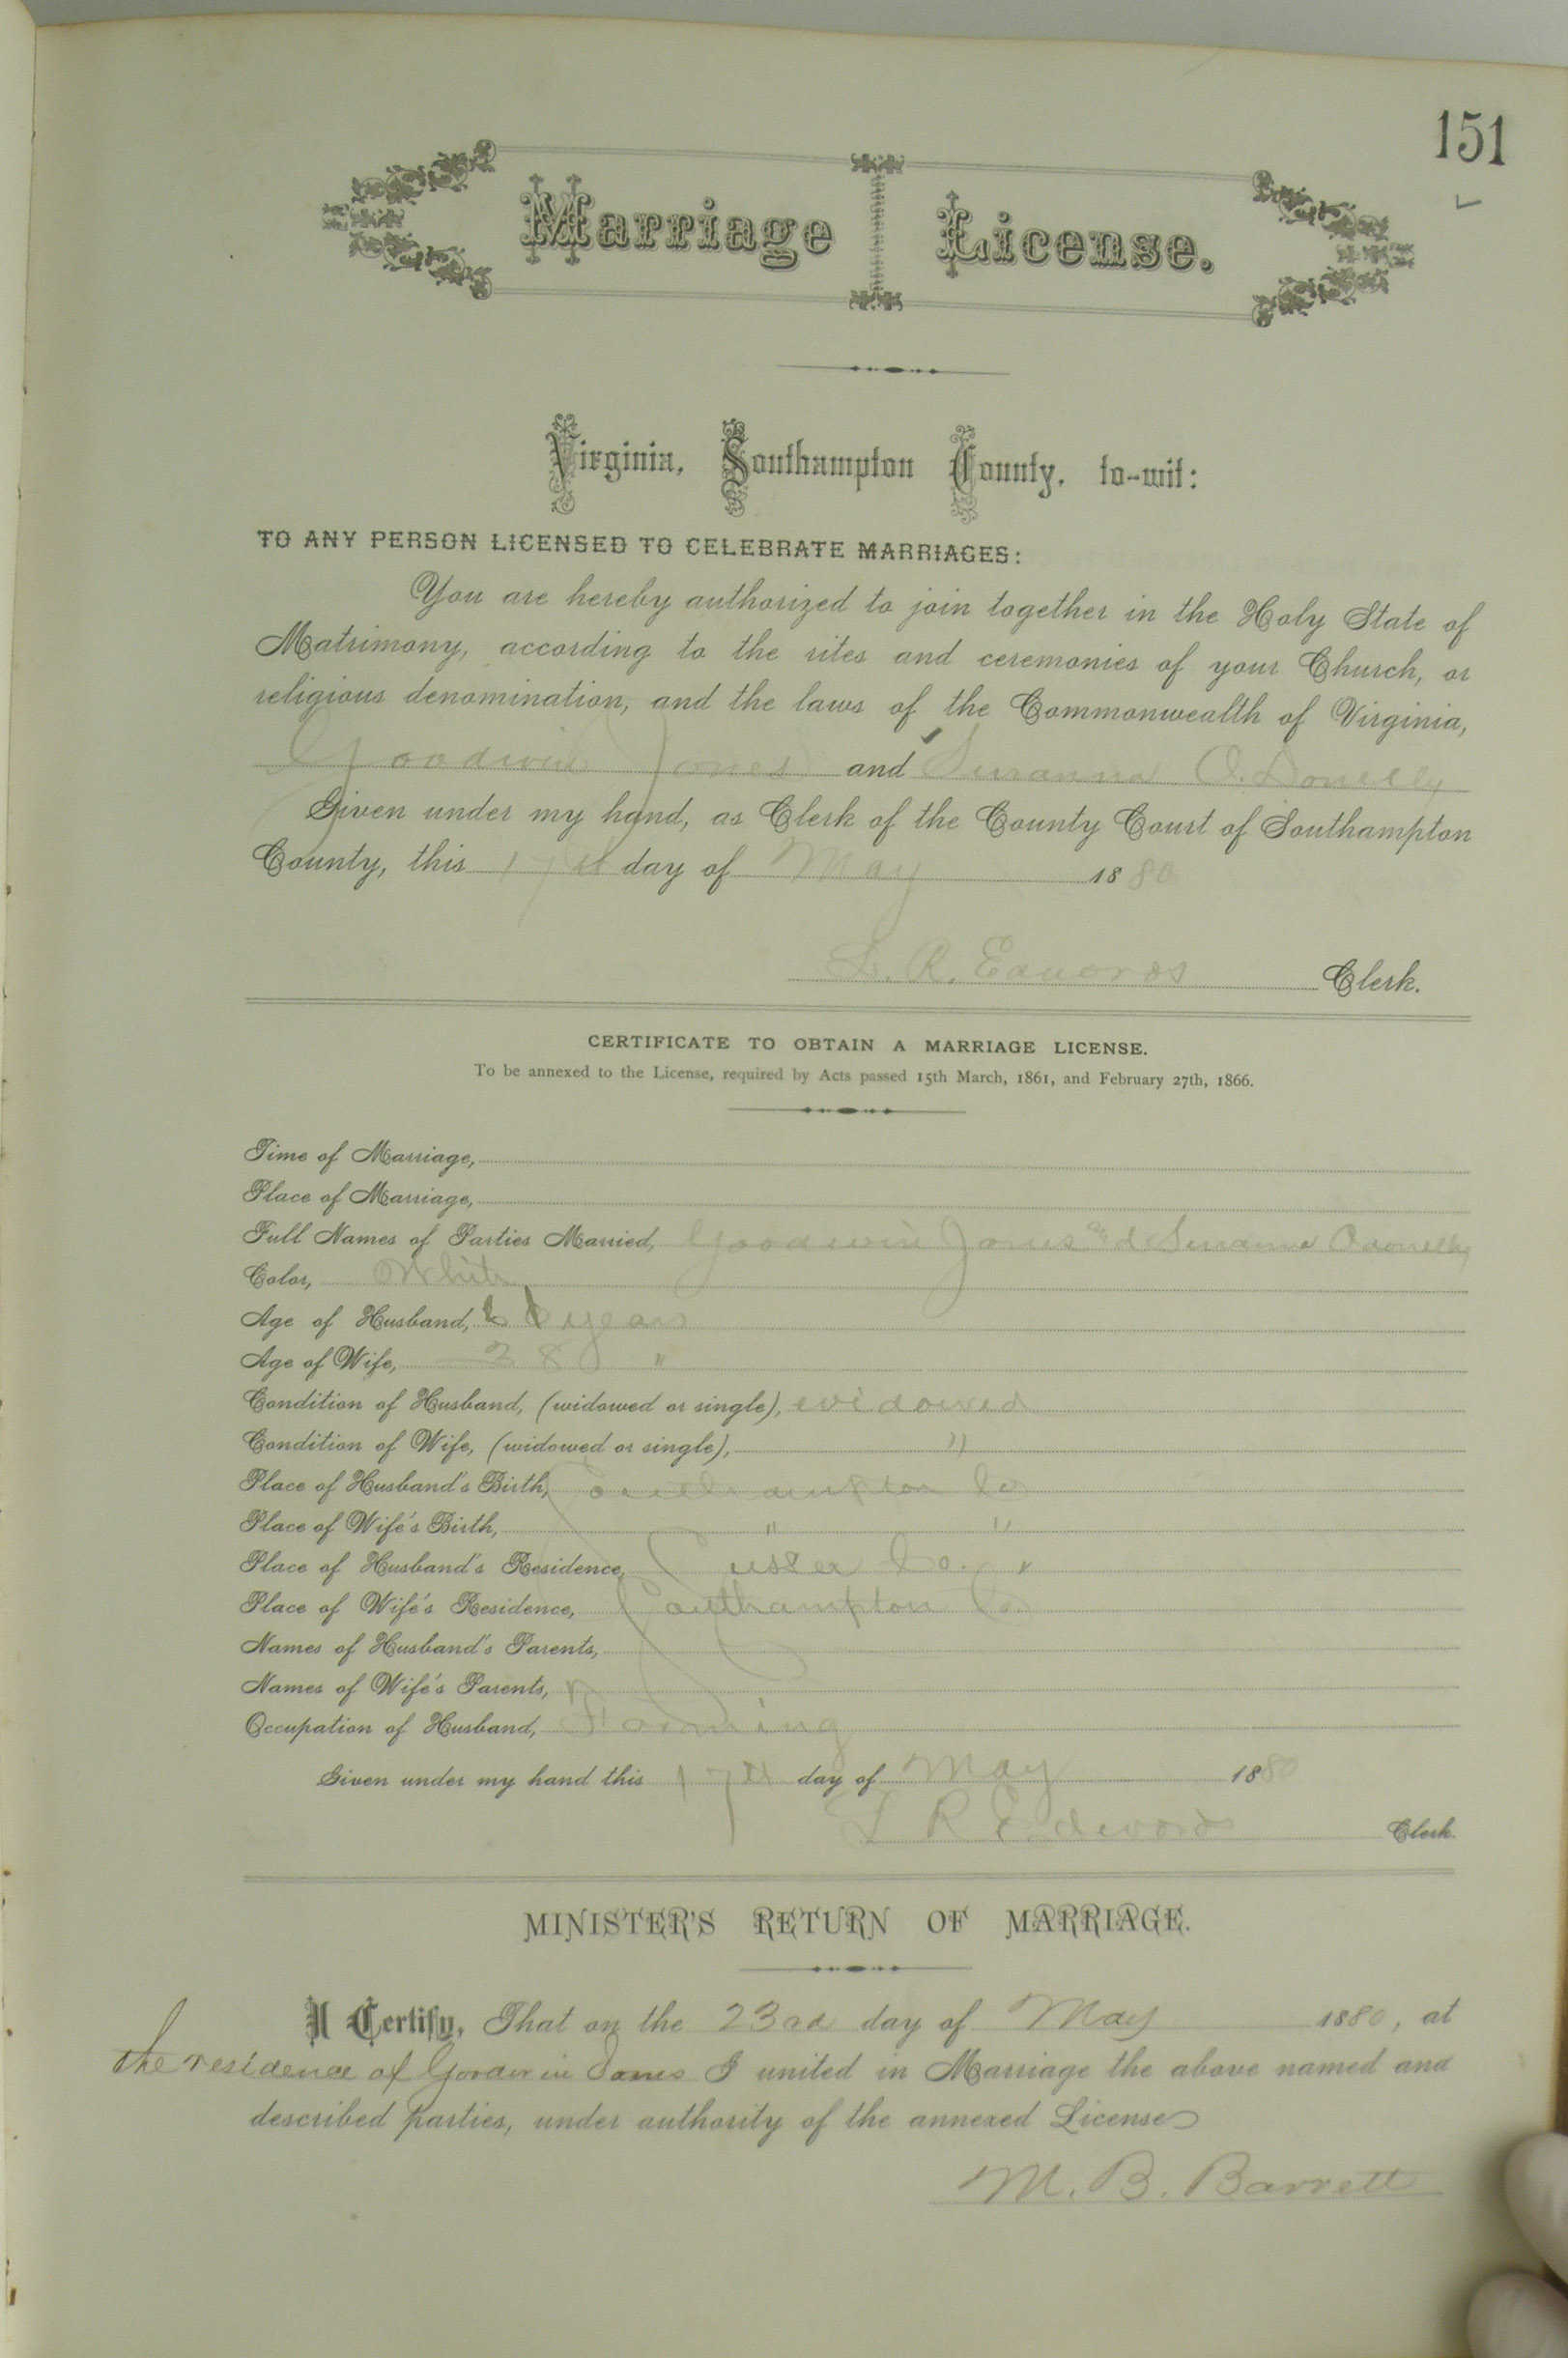 151
Marriage License.
Virginia, Southampton County, to-wit:
TO ANY PERSON LICENSED TO CELEBRATE MARRIAGES:
You are hereby authorized to join together in the Holy State of
Matrimony, according to the rites and ceremonies of your Church, or
religious denomination, and the laws of the Commonwealth of Virginia,
Goodwin Jones and Susanna O. Donelly
Given under my hand, as Clerk of the County Court of Southampton
County, this 17th day of May 1880
L. R. Edwards Clerk.
CERTIFICATE TO OBTAIN A MARRIAGE LICENSE.
To be annexed to the License, required by Acts passed 15th March, 1861, and February 27th, 1866.
Time of Marriage,
Place of Marriage,
Full Names of Parties Married, Goodwin Jones and Susanna Odonelly
Color, White
Age of Husband, 66 years
Age of Wife, 38 "
Condition of Husband, (widowed or single), widowed
Condition of Wife, (widowed or single), "
Place of Husband's Birth, Southampton Co
Place of Wife's Birth, " "
Place of Husband's Residence, Sussex Co.
Place of Wife's Residence, Southampton Co.
Names of Husband's Parents,
Names of Wife's Parents,
Occupation of Husband, Farming
Given under my hand this 17th day of May 1880
L R Edwards Clerk.
MINISTER'S RETURN OF MARRIAGE.
I Certify, That on the 23rd day of May 1880, at
the residence of Goodwin Jones I united in Marriage the above named and
described parties, under authority of the annexed License
M. B. Barrett